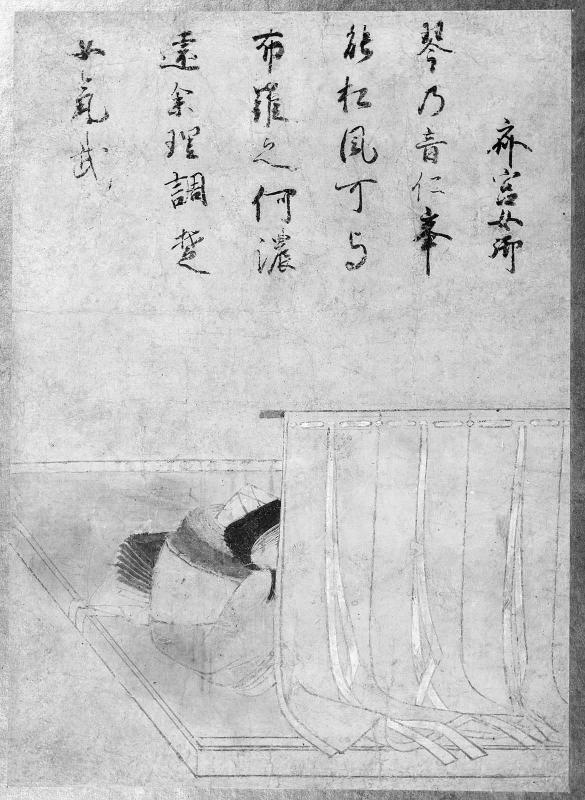 斎宮女御
琴乃音仁峯
能松風可与
布羅之何濃
遠余理調楚
女氣武